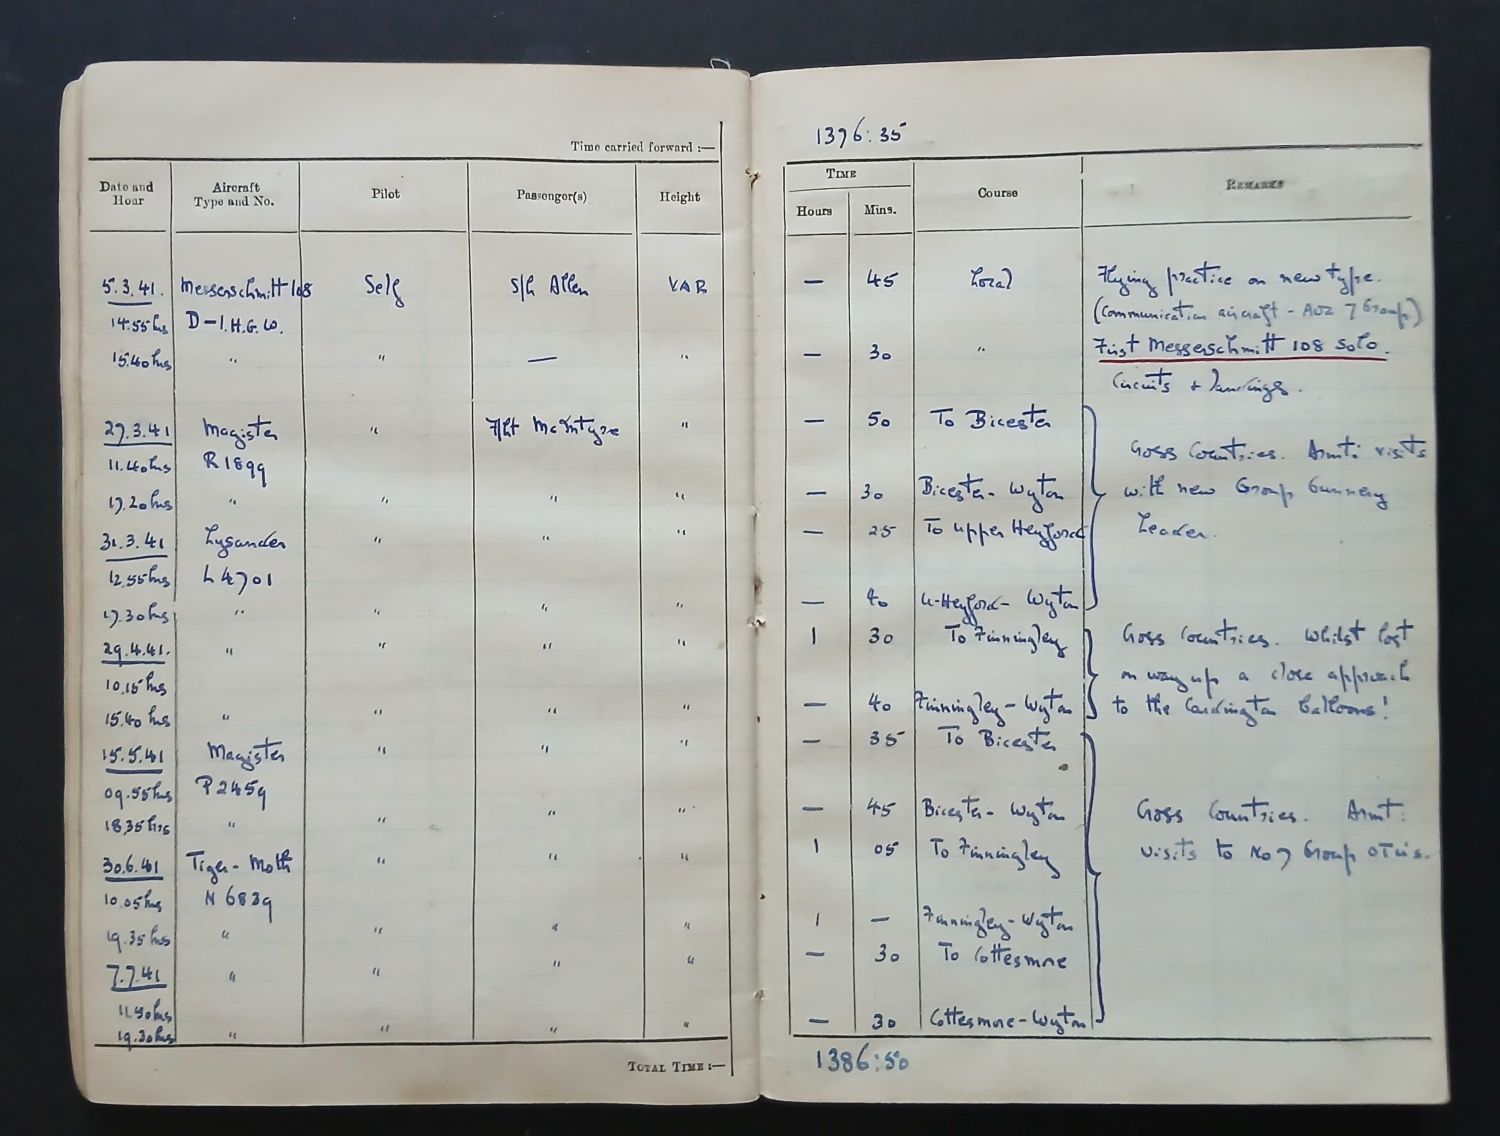 Time carried forward :— 1376:35
Date and Hour Aircraft Type and No. Pilot Passenger(s) Height TIME Hours Mins. Course REMARKS
5.3.41. Messerschmitt 108 Self S/L Allen VAR — 45 Local Flying practice on new type.
14.55hrs D-I.H.G.W. (Communication aircraft - AOC 7 Group)
15.40hrs " " — " — 30 " First Messerschmitt 108 Solo.
Circuits & landings.
27.3.41 Magister " F/Lt McIntyre " — 50 To Bicester
11.40hrs R1899 Cross Countries. Armt: visits
17.20hrs " " " " — 30 Bicester - Wyton with new Group Gunnery
31.3.41 Lysander " " " — 25 To Upper Heyford Leader.
12.55hrs L4701
17.30hrs " " " " — 40 U-Heyford - Wyton
29.4.41. " " " " 1 30 To Finningley Cross Countries. Whilst lost
10.15hrs on way up a close approach
15.40hrs " " " " — 40 Finningley - Wyton to the Cardington Balloons!
15.5.41 Magister " " " — 35 To Bicester
09.55hrs P2459
18.35hrs " " " " — 45 Bicester - Wyton Cross Countries. Armt:
30.6.41 Tiger-Moth " " " 1 05 To Finningley visits to No 7 Group OTUs.
10.05hrs N6839
19.35hrs " " " " 1 — Finningley - Wyton
7.7.41 " " " " — 30 To Cottesmore
hrs
19.30hrs " " " " — 30 Cottesmore - Wyton
TOTAL TIME :— 1386:50